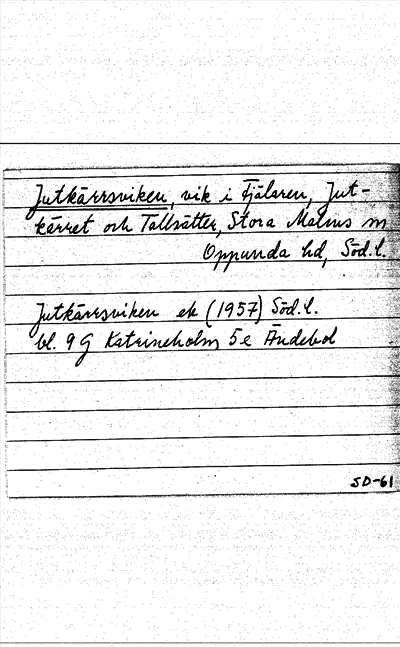 Jutkärrsviken, vik i Tjälaren, Jut-
kärret och Tallsätter, Stora Malms sn
Oppunda hd, Söd.l.
Jutkärrsviken ek (1957) Söd.l.
bl. 9 G Katrineholm 5 e Ändebol
SD-61